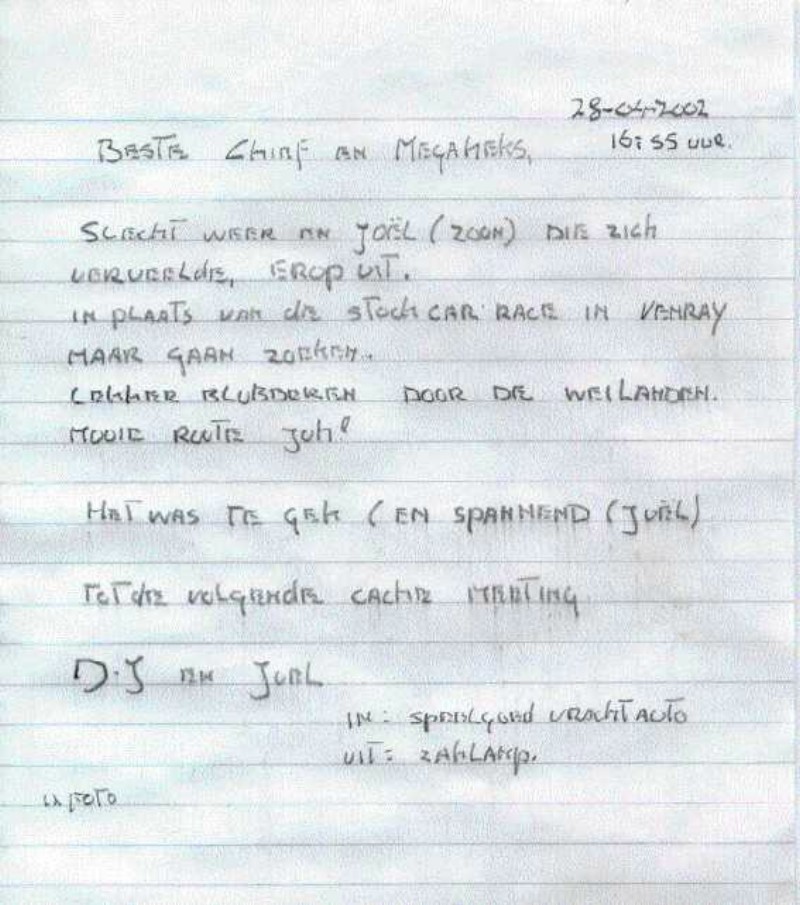 28-04-2002
16:55 UUR.
BESTE CHIEF EN MEGAHEKS,
SLECHT WEER EN JOËL (ZOON) DIE ZICH
VERVEELDE, EROP UIT.
IN PLAATS VAN DE STOCKCAR RACE IN VENRAY
MAAR GAAN ZOEKEN.
LEKKER BLUBDEREN DOOR DE WEILANDEN.
MOOIE ROUTE JOH!
HET WAS TE GEK (EN SPANNEND (JOËL)
TOT DE VOLGENDE CACHE MEETING
D.J EN JOËL
IN: SPEELGOED VRACHTAUTO
UIT: ZAKLAMP.
1x FOTO